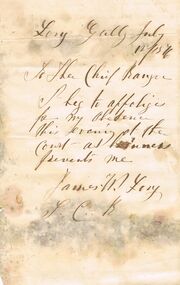 Long Gully July
To The Chief Ranger
I beg to appoligise
for my absence
this evening at the
Court - as
prevents me
James W. Long
S. C. R